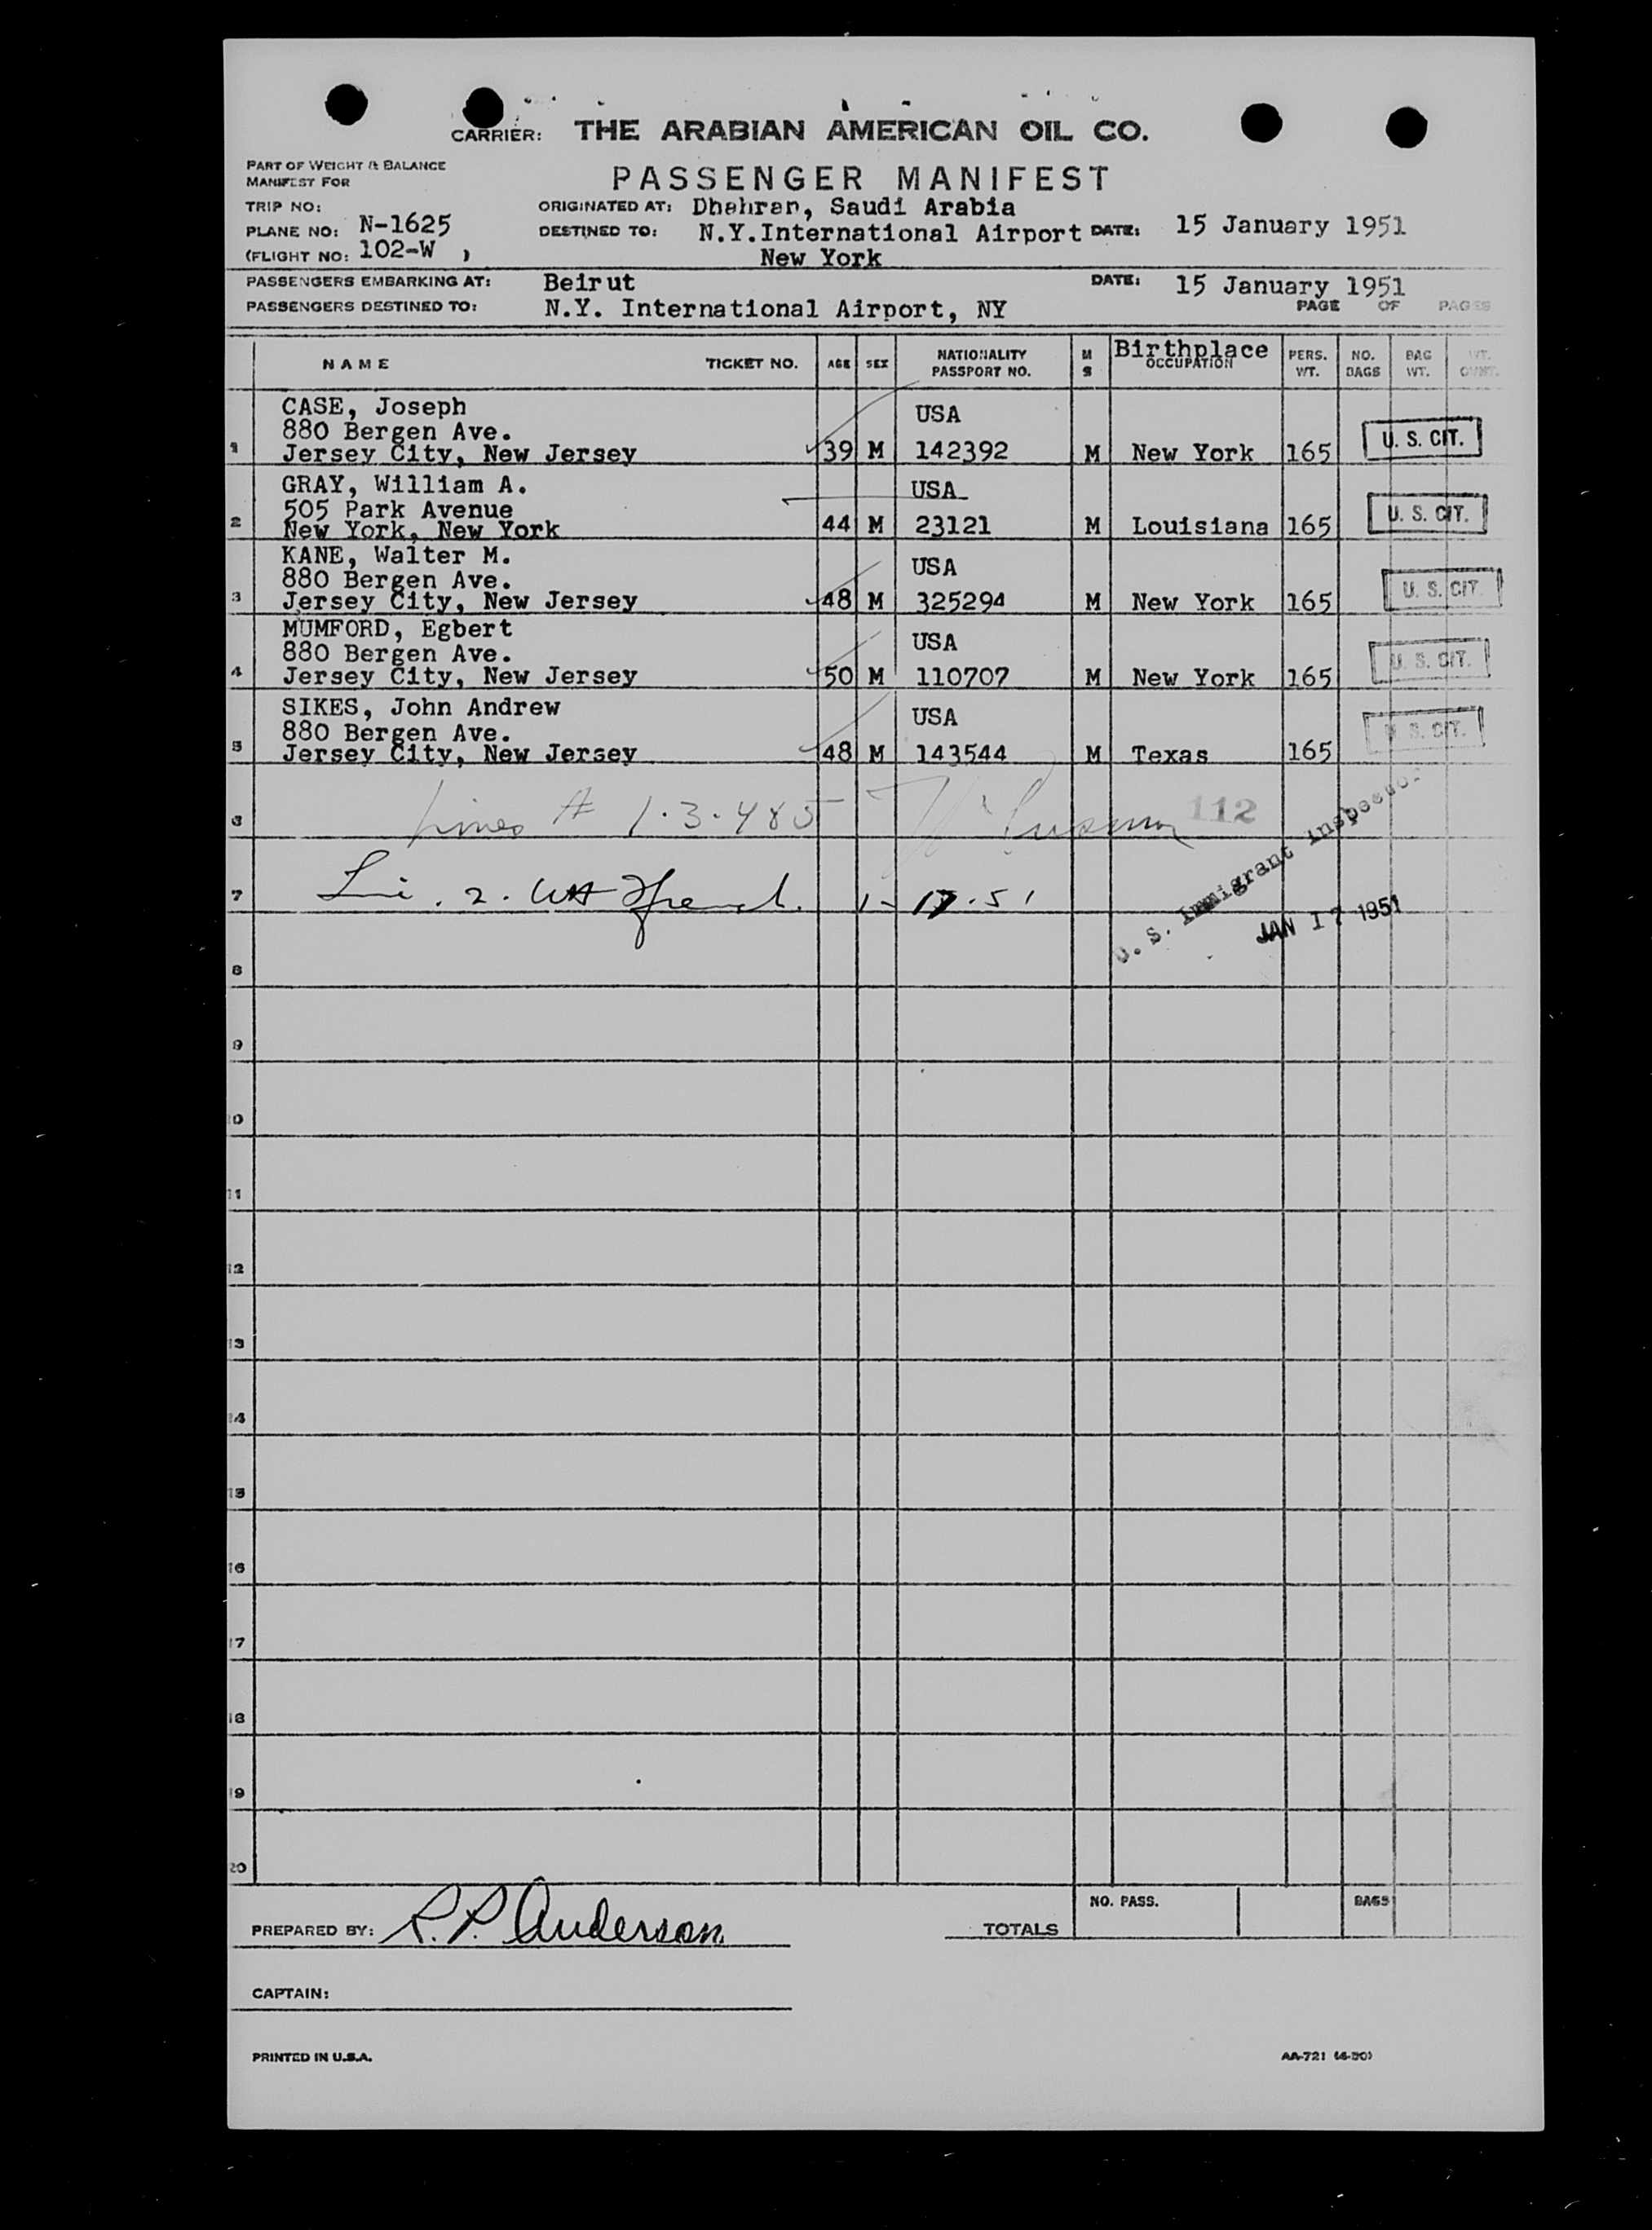 CARRIER: THE ARABIAN AMERICAN OIL CO.
PART OF WEIGHT & BALANCE
MANIFEST FOR
PASSENGER MANIFEST
TRIP NO:
ORIGINATED AT: Dhahran, Saudi Arabia
PLANE NO: N-1625
DESTINED TO: N.Y.International Airport DATE: 15 January 1951
(FLIGHT NO: 102-W )
New York
PASSENGERS EMBARKING AT: Beirut DATE: 15 January 1951
PASSENGERS DESTINED TO: N.Y. International Airport, NY PAGE OF PAGES
NAME TICKET NO. AGE SEX NATIONALITY PASSPORT NO. M S Birthplace OCCUPATION PERS. WT. NO. BAGS BAG WT. WT.
CASE, Joseph USA
880 Bergen Ave.
1 Jersey City, New Jersey 39 M 142392 M New York 165 U. S. CIT.
GRAY, William A. USA
505 Park Avenue
2 New York, New York 44 M 23121 M Louisiana 165 U. S. CIT.
KANE, Walter M. USA
880 Bergen Ave.
3 Jersey City, New Jersey 48 M 325294 M New York 165 U. S. CIT.
MUMFORD, Egbert USA
880 Bergen Ave.
4 Jersey City, New Jersey 50 M 110707 M New York 165 U. S. CIT.
SIKES, John Andrew USA
880 Bergen Ave.
5 Jersey City, New Jersey 48 M 143544 M Texas 165 U. S. CIT.
6 Lines # 1.3.4&5 112
7 Li. 2. 1-17-51
U. S. Immigrant Inspector
JAN 17 1951
8
9
10
11
12
13
14
15
16
17
18
19
20
PREPARED BY: R.P. Anderson TOTALS NO. PASS. BAGS
CAPTAIN:
PRINTED IN U.S.A. AA-721 (4-50)